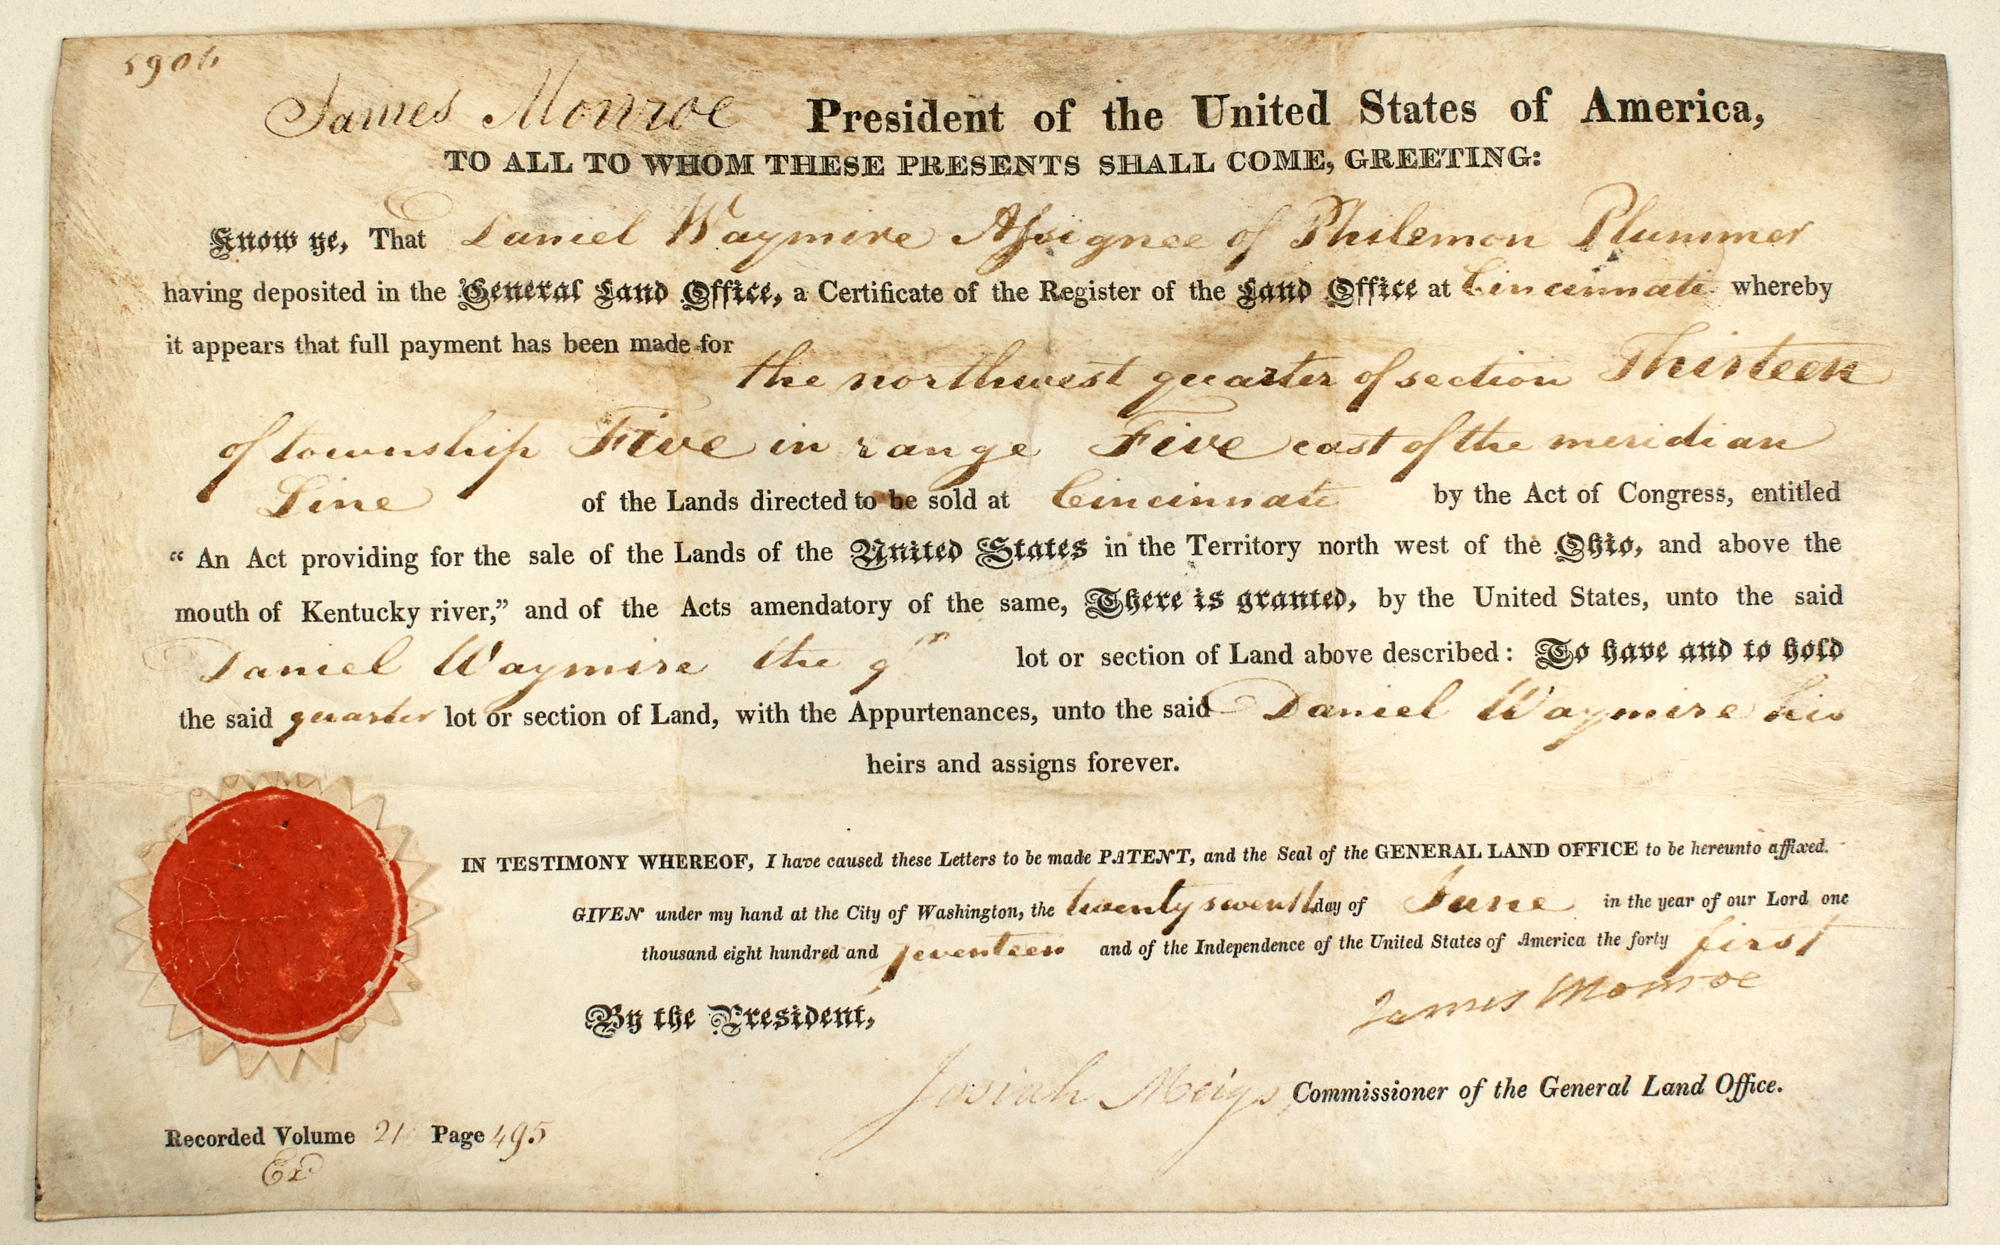 5906
James Monroe President of the United States of America,
TO ALL TO WHOM THESE PRESENTS SHALL COME, GREETING:
Know ye, That Daniel Waymire Assignee of Philemon Plummer
having deposited in the General Land Office, a Certificate of the Register of the Land Office at Cincinnati whereby
it appears that full payment has been made for
the northwest quarter of section Thirteen
of township Five in range Five east of the meridian
Line of the Lands directed to be sold at Cincinnati by the Act of Congress, entitled
“ An Act providing for the sale of the Lands of the United States in the Territory north west of the Ohio, and above the
mouth of Kentucky river,” and of the Acts amendatory of the same, There is granted, by the United States, unto the said
Daniel Waymire the qr lot or section of Land above described: To have and to hold
the said quarter lot or section of Land, with the Appurtenances, unto the said Daniel Waymire his
heirs and assigns forever.
IN TESTIMONY WHEREOF, I have caused these Letters to be made PATENT, and the Seal of the GENERAL LAND OFFICE to be hereunto affixed.
GIVEN under my hand at the City of Washington, the twenty seventh day of June in the year of our Lord one
thousand eight hundred and seventeen and of the Independence of the United States of America the forty first
James Monroe
By the President,
Josiah Meigs, Commissioner of the General Land Office.
Recorded Volume 21 Page 495
Exd